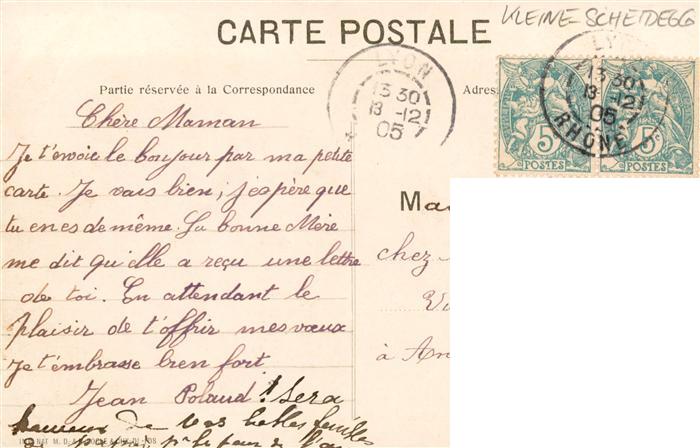 CARTE POSTALE
KLEINE-SCHEIDEGG
Partie réservée à la Correspondance
Adres
LYON
13 30
13 -12
05
LY
13 30
13 -12
05
RHÔNE
5c 5c
POSTES POSTES
Chère Maman
Je t'envoie le bonjour par ma petite
carte. Je vais bien; j'espère que
tu en es de même. La bonne Mère
me dit qu'elle a reçu une lettre
de toi. En attendant le
plaisir de t'offrir mes vœux
Je t'embrasse bien fort
Jean
sera
de vos belles
Ma
chez
à An